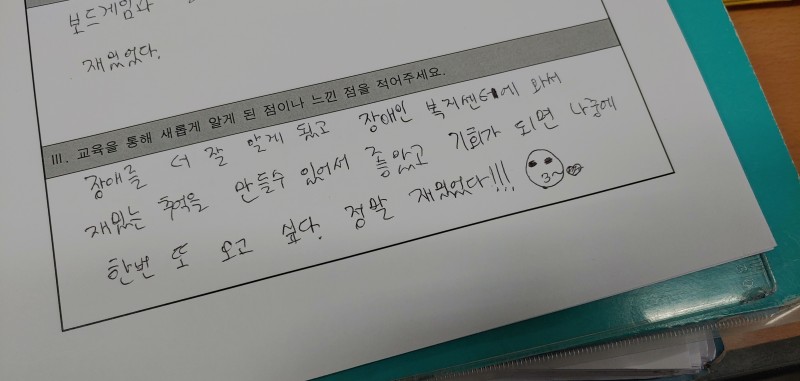 보드게임과
재밌었다.
III. 교육을 통해 새롭게 알게 된 점이나 느낀 점을 적어주세요.
장애를 더 잘 알게 됬고 장애인 복지센터에 와서
재밌는 추억을 만들수 있어서 좋았고 기회가 되면 나중에
한번 또 오고 싶다. 정말 재밌었다!!!